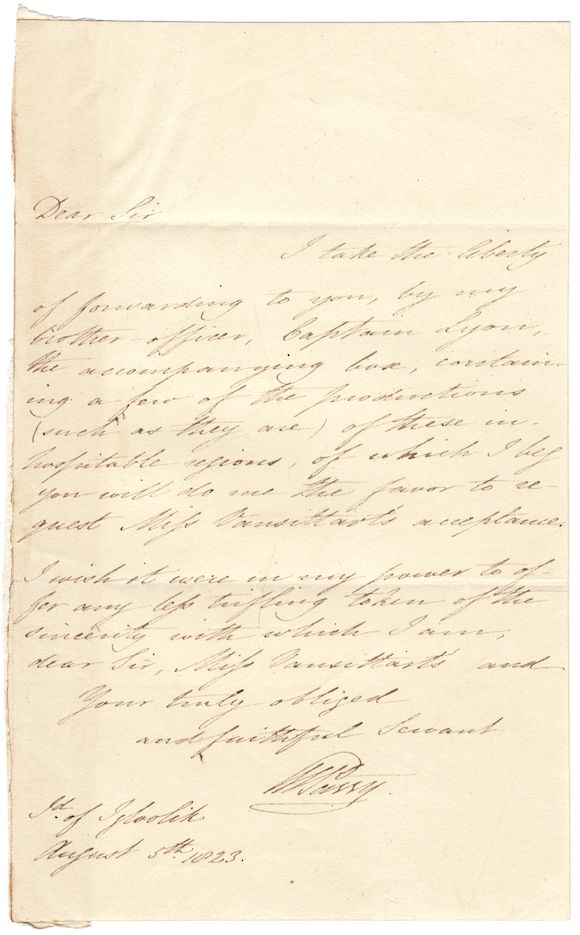 Dear Sir
I take the liberty
of forwarding to you, by my
brother-officer, Captain Lyon,
the accompanying box, contain-
ing a few of the productions
(such as they are) of these in-
hospitable regions, of which I beg
you will do me the favor to re-
quest Miss Vansittart's acceptance.
I wish it were in my power to of-
fer any less trifling token of the
sincerity with which I am,
dear Sir, Miss Vansittart's and
Your truly obliged
and faithful Servant
WEParry.
Id. of Igloolik
August 5th. 1823.